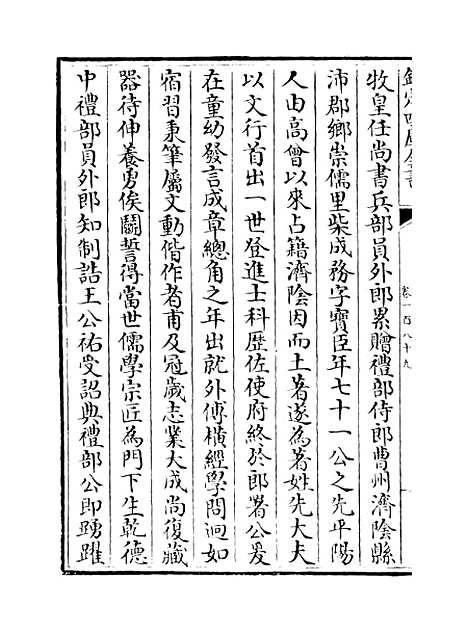 欽定四庫全書
卷一百八十九
牧皇任尚書兵部員外郎累贈禮部侍郎曹州濟陰縣
沛郡鄉崇儒里柴成務字寶臣年七十一公之先平陽
人由高曾以來占籍濟陰因而土著遂為著姓先大夫
以文行首出一世登進士科歷佐使府終於郎署公爰
在童幼發言成章總角之年出就外傅橫經學問迥如
宿習秉筆屬文動偕作者甫及冠歲志業大成尚復藏
器待伸養勇俟鬬誓得當世儒學宗匠為門下生乾德
中禮部員外郎知制誥王公祐受詔典禮部公即踴躍